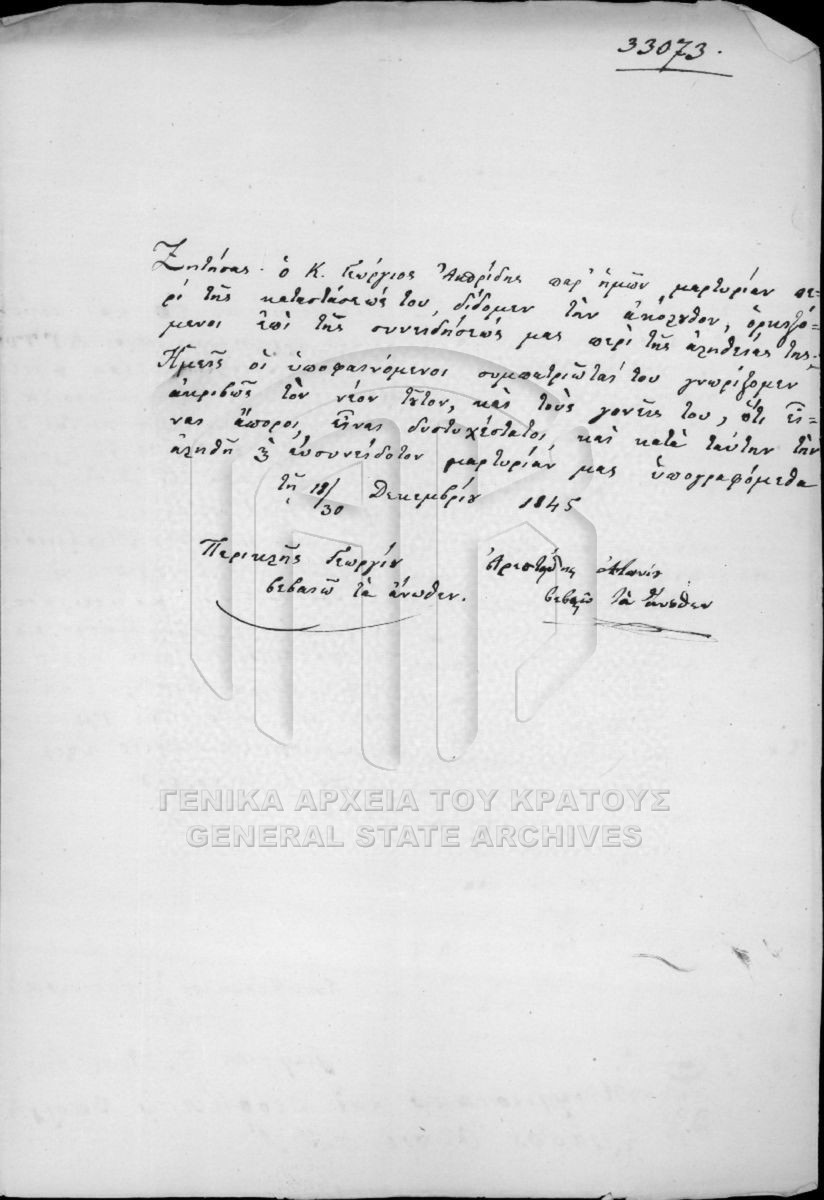 33073.
Ζητήσας ὁ Κ. Γεώργιος Ἀκρίδης παρ' ἡμῶν μαρτυρίαν πε-
ρὶ τῆς καταστάσεώς του, δίδομεν τὴν ἀκόλουθον, ὁρκιζό-
μενοι ἐπὶ τῆς συνειδήσεώς μας περὶ τῆς ἀληθείας της.
Ἡμεῖς οἱ ὑποφαινόμενοι συμπατριῶταί του γνωρίζομεν
ἀκριβῶς τὸν νέον τοῦτον, καὶ τοὺς γονεῖς του, ὅτι εἶ-
ναι ἄποροι, εἶναι δυστυχέστατοι, καὶ κατὰ ταύτην τὴν
ἀληθῆ καὶ εὐσυνείδοτον μαρτυρίαν μας ὑπογραφόμεθα
τῇ 18/30 Δεκεμβρίου 1845
Περικλῆς Γεωργίου Ἀριστείδης
βεβαιῶ τὰ ἄνωθεν. βεβαιῶ τὰ ἄνωθεν
ΓΕΝΙΚΑ ΑΡΧΕΙΑ ΤΟΥ ΚΡΑΤΟΥΣ
GENERAL STATE ARCHIVES